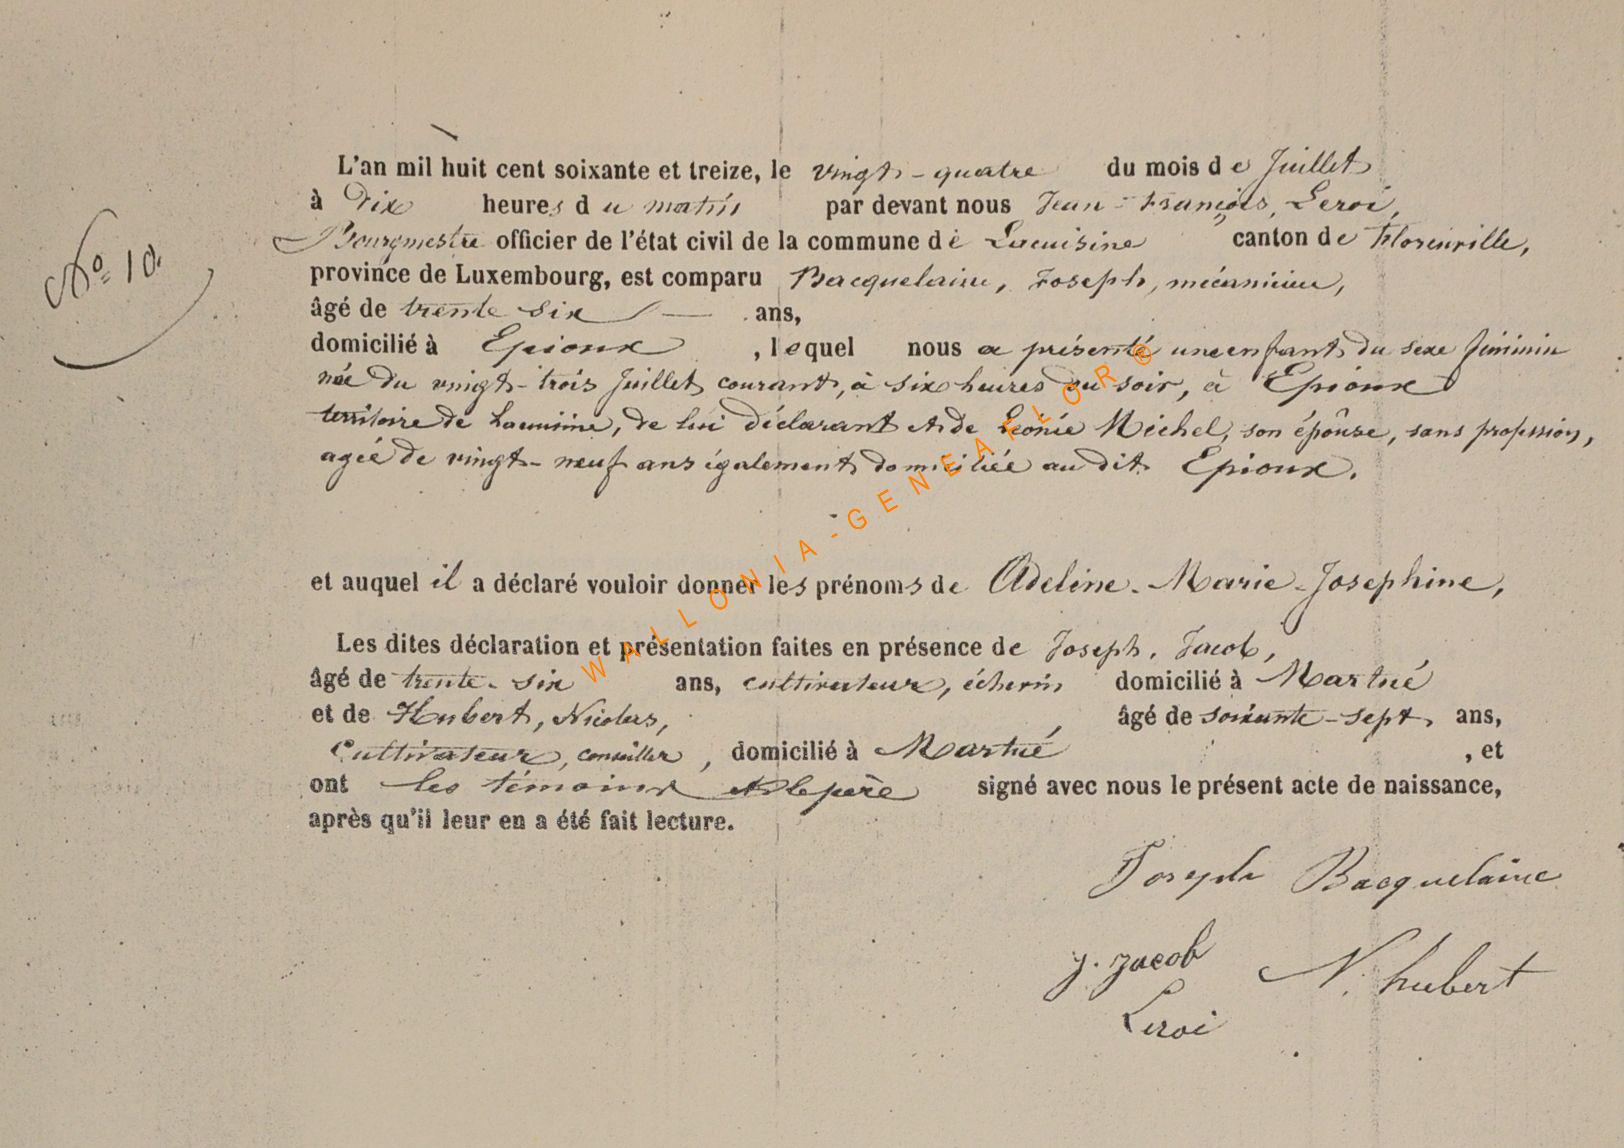 L'an mil huit cent soixante et treize, le vingt-quatre du mois de Juillet
à Dix heures du matin par devant nous Jean-François, Leroi,
Bourgmestre officier de l'état civil de la commune de Lacuisine canton de Florenville,
N° 10.
province de Luxembourg, est comparu Bacquelaine, Joseph, mécanicien,
âgé de trente six ans,
domicilié à Epioux, lequel nous a présenté une enfant du sexe féminin
née du vingt-trois Juillet courant, à six heures du soir, à Epioux
territoire de Lacuisine, de lui déclarant et de Léonie Michel, son épouse, sans profession,
agée de vingt-neuf ans également domiciliée au dit Epioux.
et auquel il a déclaré vouloir donner les prénoms de Adeline-Marie-Josephine,
Les dites déclaration et présentation faites en présence de Joseph, Jacob,
âgé de trente-six ans, cultivateur, échevin domicilié à Martué
et de Hubert, Nicolas, âgé de soixante-sept ans,
Cultivateur, conseiller, domicilié à Martué, et
ont les témoins et le père signé avec nous le présent acte de naissance,
après qu'il leur en a été fait lecture.
Joseph Bacquelaine
J. Jacob N. hubert
Leroi
WALLONIA-GENEALLORG ®